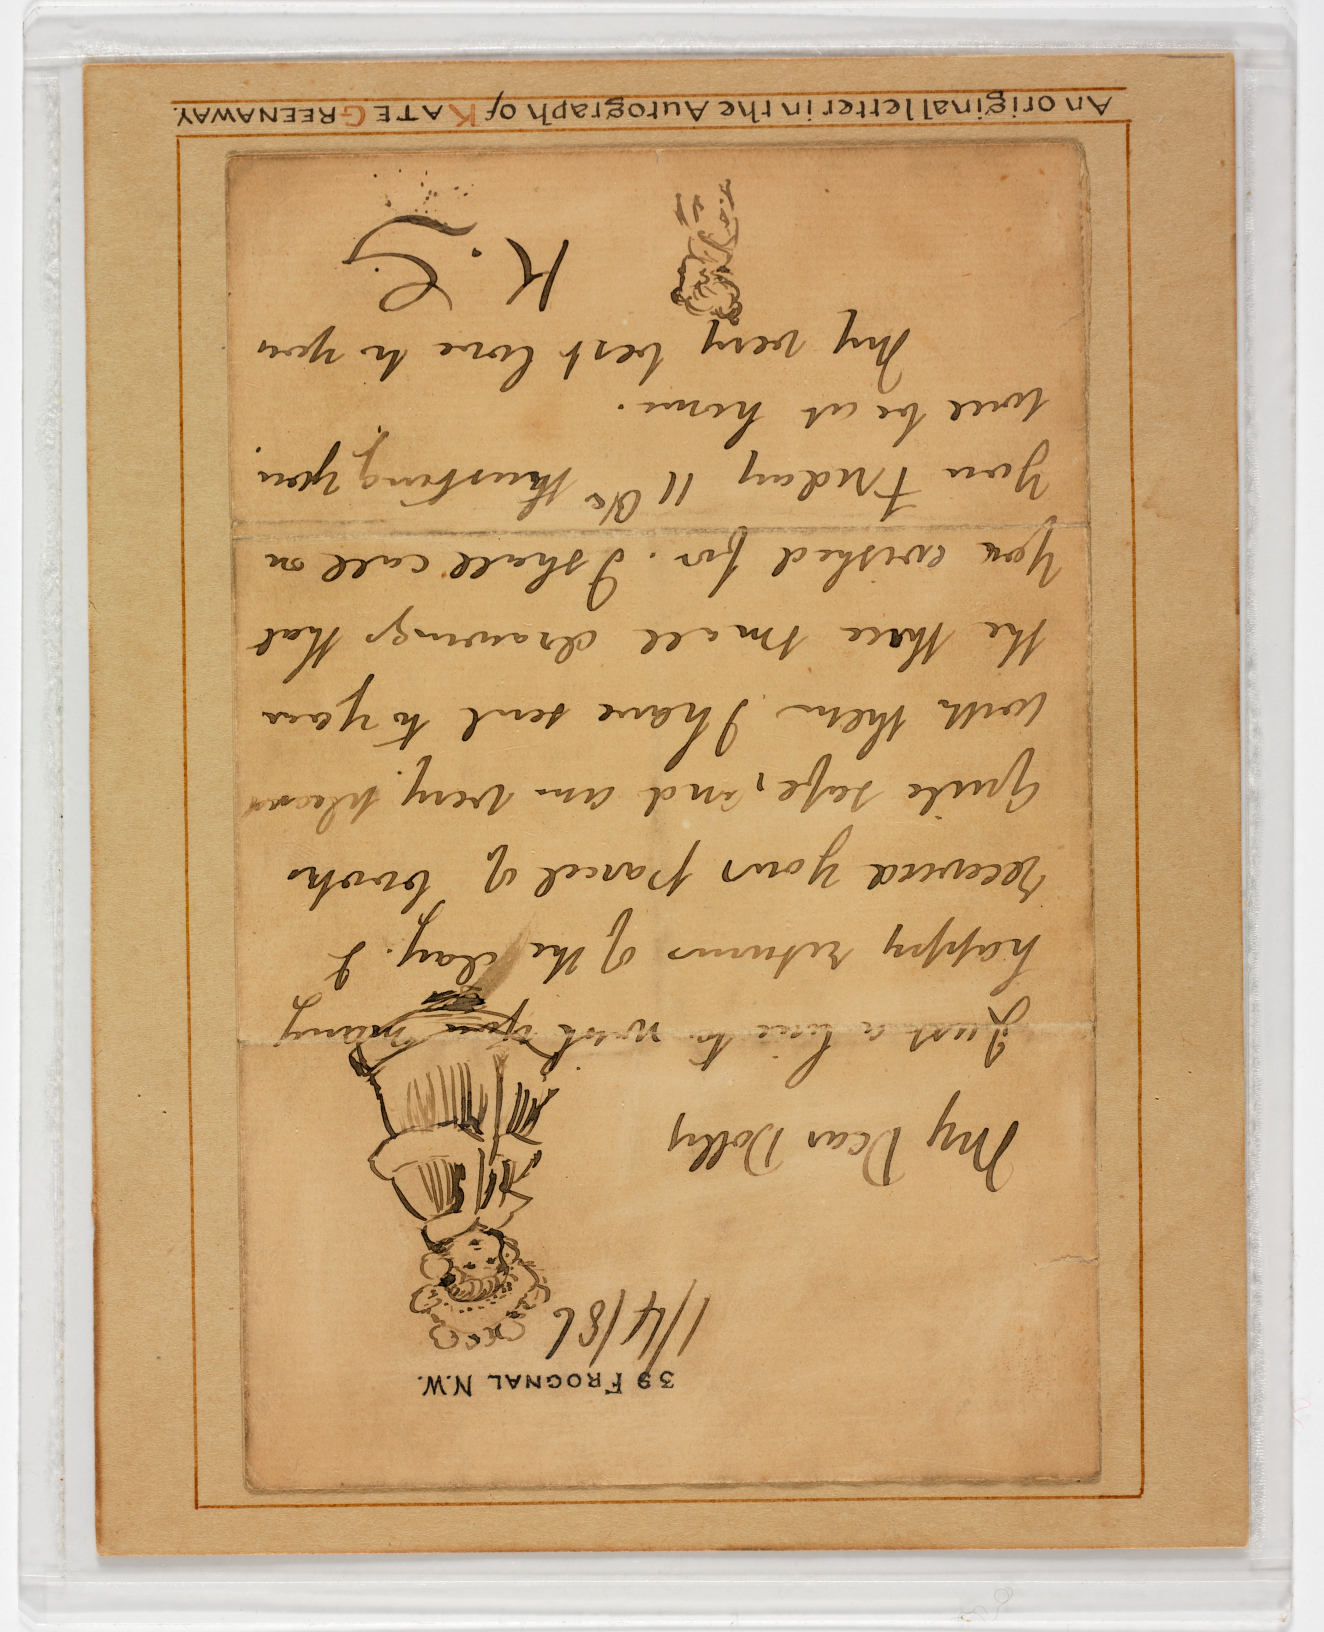 39 FROGNAL N.W.
1/4/86
My Dear Dolly
Just a line to wish you many
happy returns of the day. I
received your parcel of books
quite safe, and am very pleased
with them. I have sent to you
the three small drawings that
you wished for. I shall call on
you Friday 11 Oc trusting you
will be at home.
My very best love to you
K. G.
An original letter in the Autograph of KATE GREENAWAY.